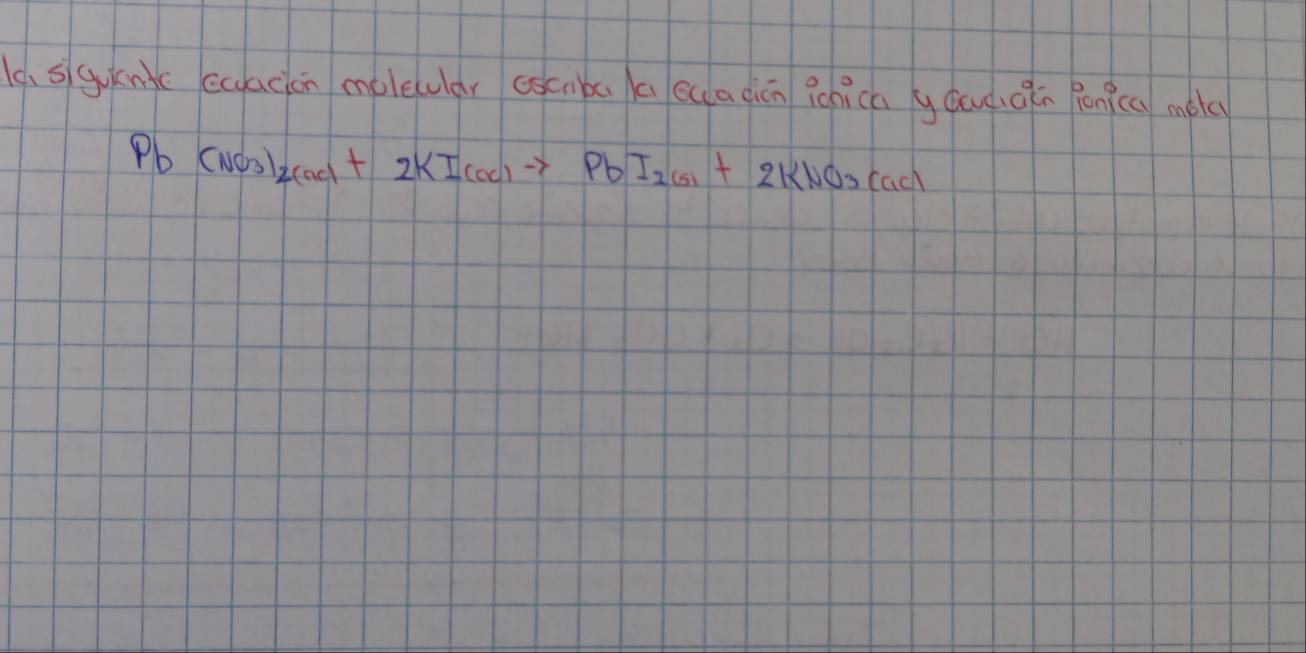 la siguiente ecuación molecular escriba la ecuación iónica y ecuación iónica neta
Pb (NO3)2(ac) + 2KI(ac) → PbI2(s) + 2KNO3(ac)